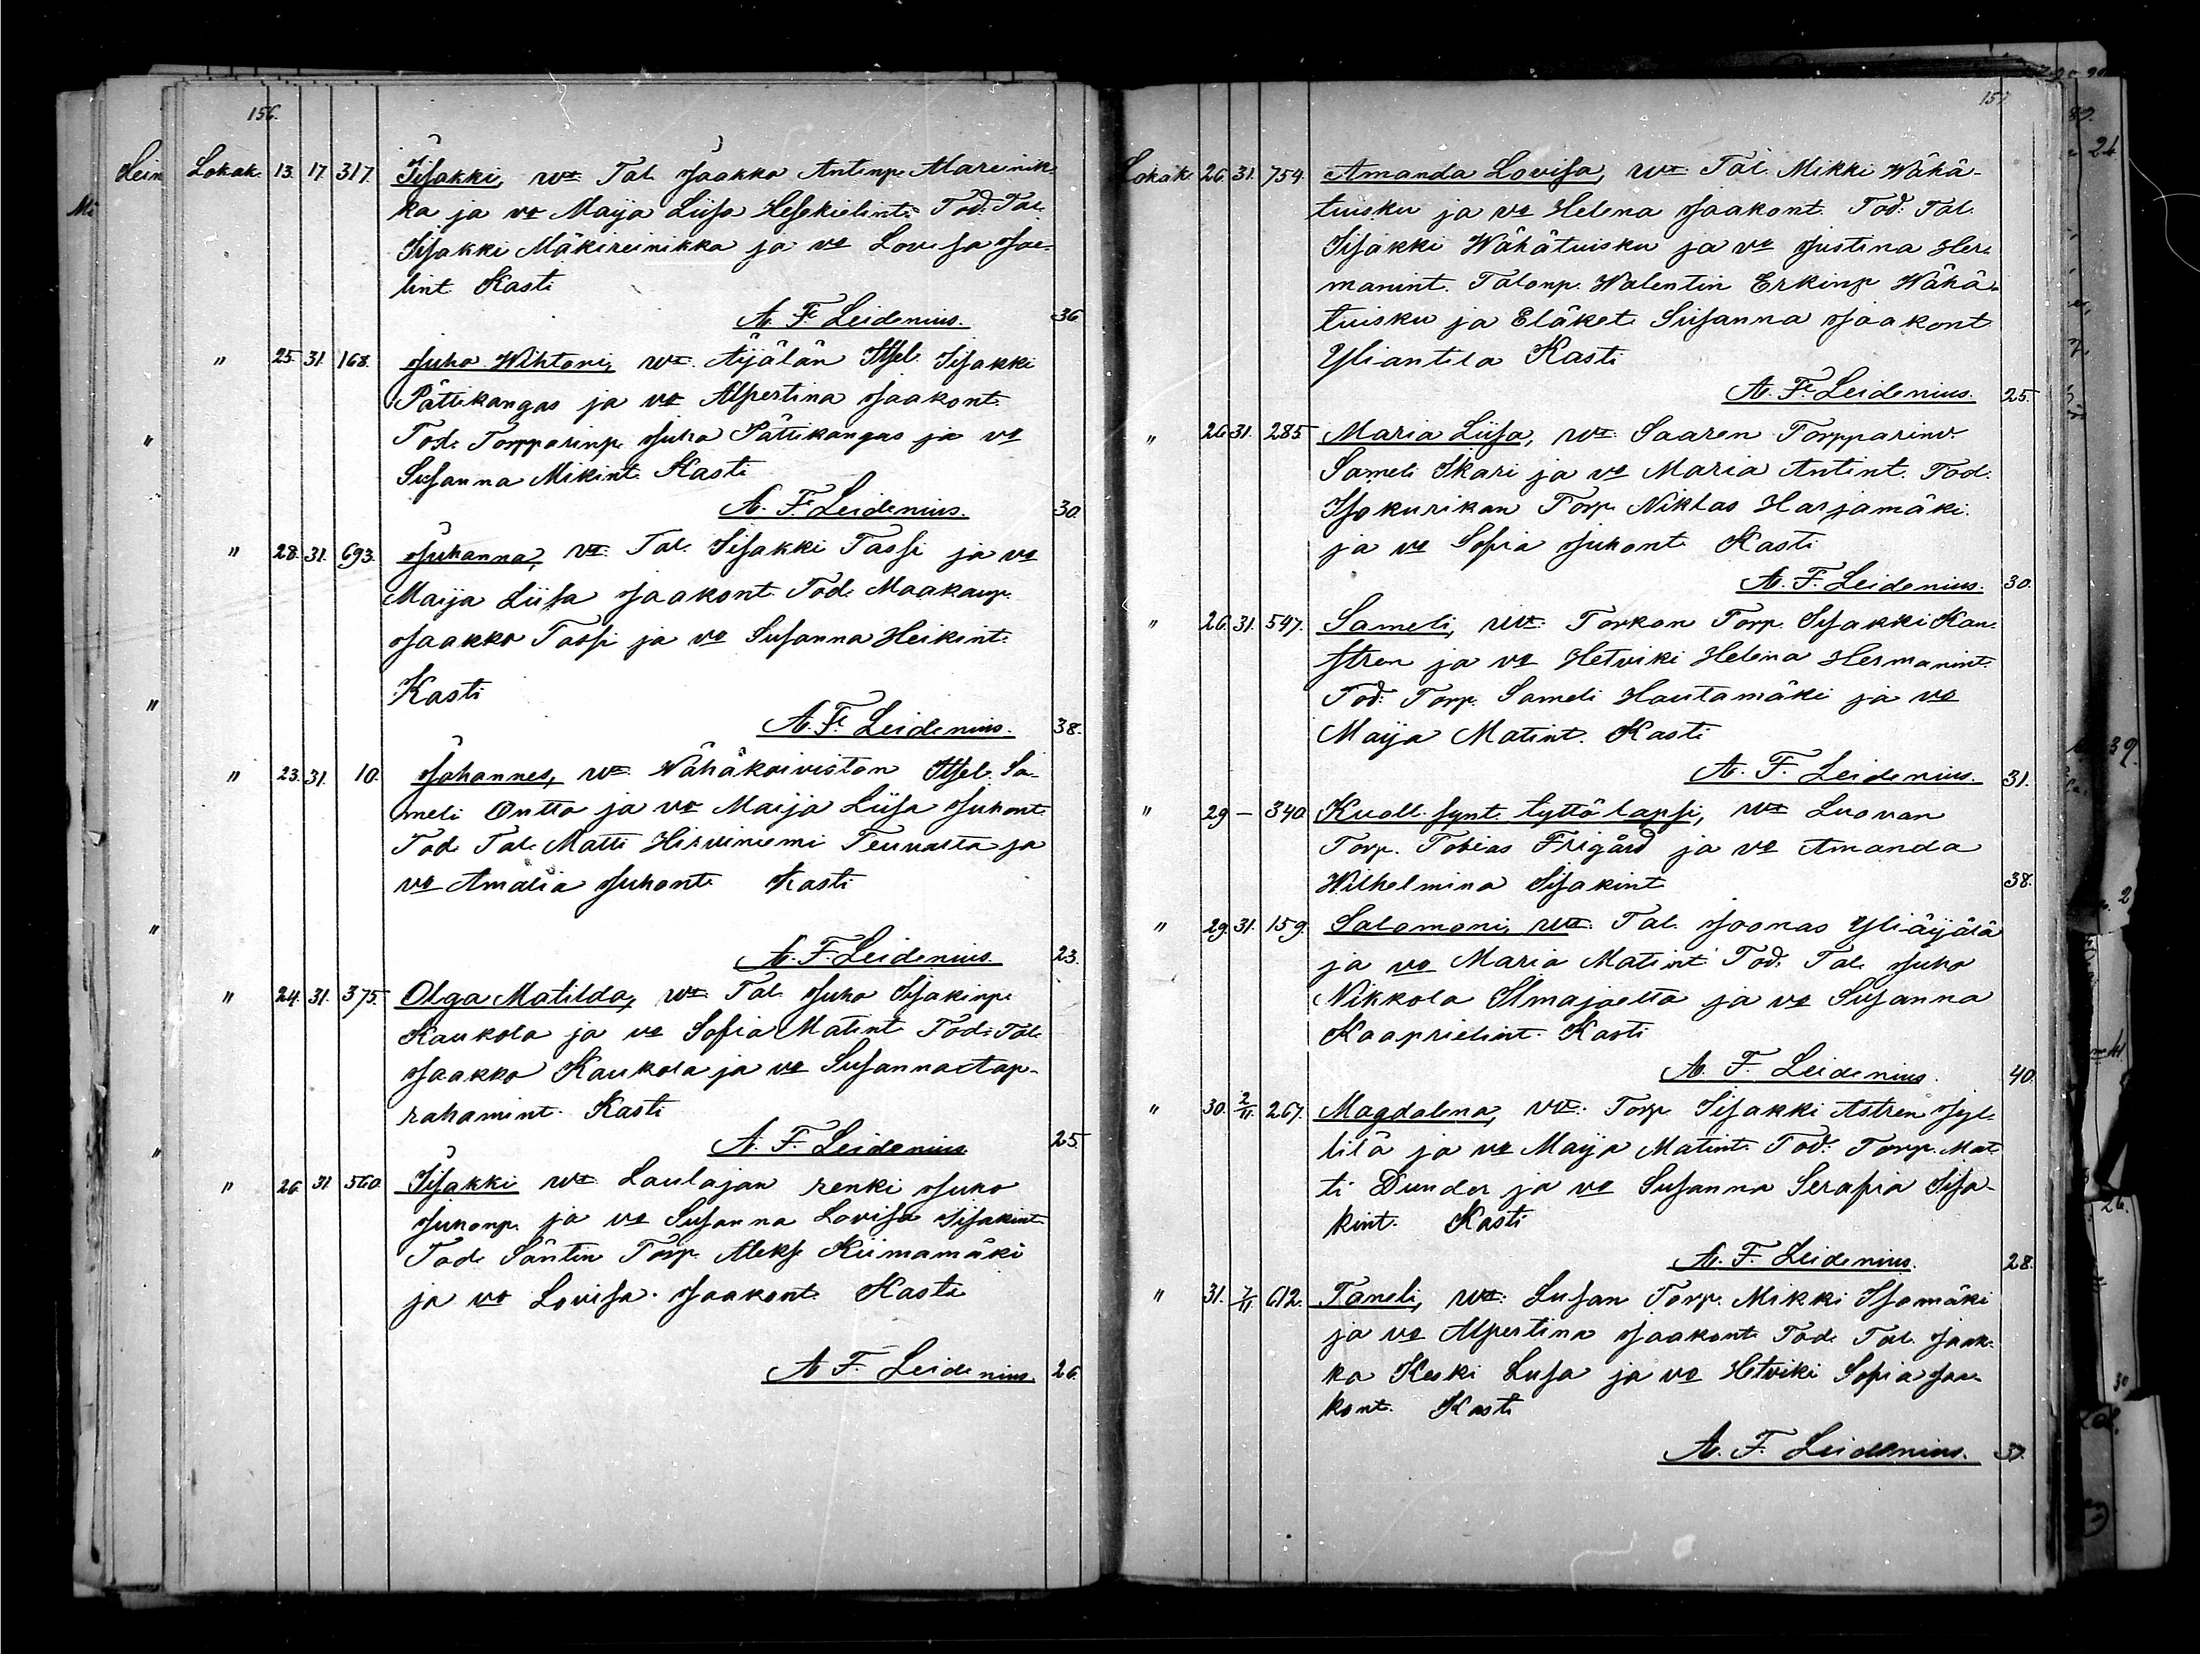 156.
Lokak. 13. 17. 317. Iisakki, vt Tal. Jaakko Antinp. Mareinik-
ka ja vo Maija Liisa Hesekielint. Tod. Tal.
Iisakki Mäkireinikka ja vo Lovisa Joe-
lint. Kasti
A. F. Leidenius. 36
" 25. 31. 168. Juho Wihtori, vt. Äijälän Itsel. Iisakki
Pättikangas ja vo Alpertina Jaakont.
Tod. Torpparinp. Juho Pättikangas ja vo
Susanna Mikint. Kasti
A. F. Leidenius. 30.
" 28. 31. 693. Juhanna, vt. Tal. Iisakki Tassi ja vo
Maija Liisa Jaakont. Tod. Maakaup.
Jaakko Tassi ja vo Susanna Heikint.
Kasti
A. F. Leidenius. 38.
" 23. 31. 10. Johannes, vt. Wähäkoiviston Itsel. Sa-
meli Ontto ja vo Maija Liisa Juhont.
Tod. Tal. Matti Hirviniemi Teuvalta ja
vo Amalia Juhont. Kasti
A. F. Leidenius. 23.
" 24. 31. 375. Olga Matilda, vt. Tal. Juho Iisakinp.
Kaukola ja vo Sofia Matint. Tod. Tal.
Jaakko Kaukola ja vo Susanna Ap-
rahamint. Kasti
A. F. Leidenius. 25.
" 26. 31 560. Iisakki vt. Laulajan renki Juho
Juhonp. ja vo Susanna Lovisa Iisakint.
Tod. Säntin Torp. Aleks. Kiimamäki
ja vo Lovisa Jaakont. Kasti
A F. Leidenius. 26.
Lokak 26. 31. 754. Amanda Lovisa, vt Tal. Mikki Wähä-
tuisku ja vo Helena Jaakont. Tod. Tal.
Iisakki Wähätuisku ja vo Justina Her-
manint. Talonp. Walentin Erkinp. Wähä-
tuisku ja Eläket. Susanna Jaakont
Yliantila Kasti
A. F. Leidenius. 25.
" 26 31. 285. Maria Liisa, vt. Saaren Torpparinv.
Sameli Ikari ja vo Maria Antint. Tod.
Isokurikan Torp. Niklas Harjamäki
ja vo Sofia Juhont. Kasti
A. F. Leidenius. 30.
" 26. 31. 547. Sameli, vt. Torkon Torp. Iisakki Kan-
stren ja vo Hetviki Helena Hermanint.
Tod. Torp. Sameli Hautamäki ja vo
Maija Matint. Kasti
A. F. Leidenius. 31.
" 29 — 340. Kuoll. synt. tyttö lapsi, vt Luovan
Torp. Tobias Frigård ja vo Amanda
Wilhelmina Iisakint 38.
" 29. 31. 159. Salomoni, vt. Tal. Joonas Yliäijälä
ja vo Maria Matint. Tod. Tal. Juho
Nikkola Ilmajoelta ja vo Susanna
Kaaprielint. Kasti
A. F. Leidenius. 40.
" 30. 2/11. 267. Magdalena, vt. Torp. Iisakki Astren Jyl-
lilä ja vo Maija Matint. Tod. Torp. Mat-
ti Dunder ja vo Susanna Serafia Iisa-
kint. Kasti
A. F. Leidenius. 28.
" 31. 7/11 612. Taneli, vt. Lusan Torp. Mikki Isomäki
ja vo Alpertina Jaakont. Tod. Tal. Jaak-
ko Keski Lusa ja vo Hetviki Sofia Jaa-
kont. Kasti
A. F. Leidenius. 37.